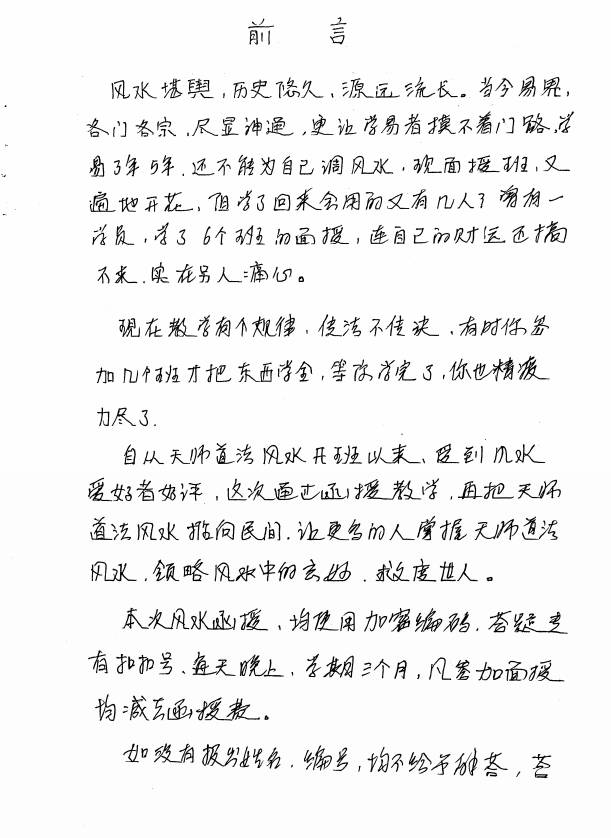 前言
风水堪舆，历史悠久，源远流长。当今易界，
各门各宗，尽显神通，更让学易者摸不着门路，学
易3年5年，还不能为自己调风水，现面授班，又
遍地开花，但学了回来会用的又有几人？曾有一
学员，学了6个班的面授，连自己的财运还搞
不来，实在另人痛心。
现在教学有个规律，传法不传诀，有时你参
加几个班才把东西学全，等你学完了，你也精疲
力尽了.
自从天师道法风水开班以来，受到风水
爱好者好评，这次通过函授教学，再把天师
道法风水推向民间，让更多的人掌握天师道法
风水，领略风水中的玄妙，救度世人。
本次风水函授，均使用加密编码，答疑专
有扣扣号，每天晚上，学期三个月，凡参加面授
均减去函授费。
如没有报出姓名，编号，均不给予解答，答